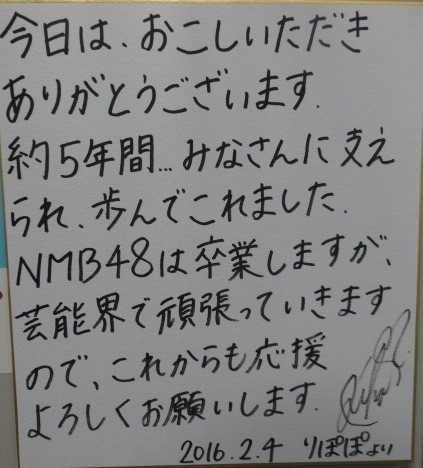 今日は、おこしいただき
ありがとうございます.
約5年間...みなさんに支え
られ、歩んでこれました.
NMB48は卒業しますが、
芸能界で頑張っていきます
ので、これからも応援
よろしくお願いします.
2016.2.4 りぽぽより